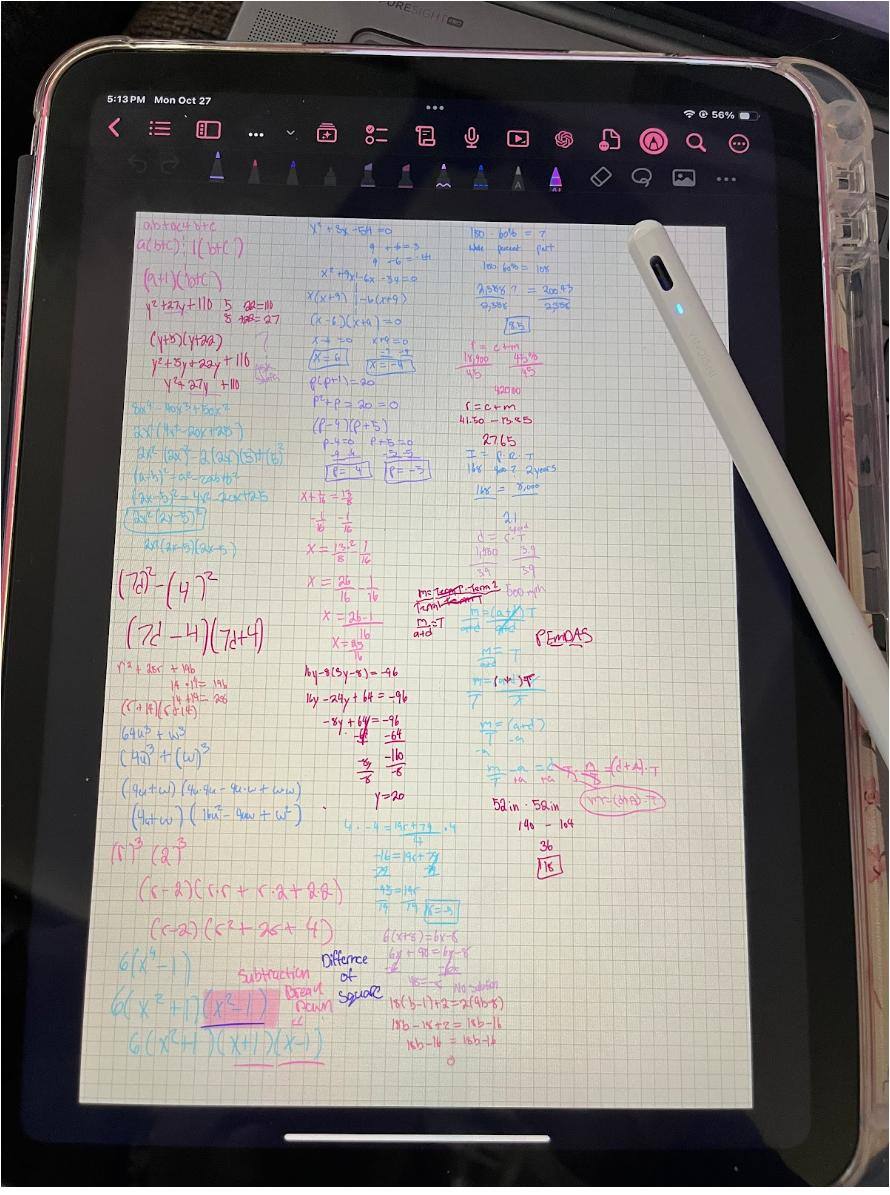 PURESIGHT PRO
5:13 PM Mon Oct 27
56%
ab+ac+b+c
a(b+c) 1(b+c)
(a+1)(b+c)
y²+27y+110 5 22=110
5 +22=27
(y+5)(y+22)
y²+5y+22y+110
y²+27y+110
8x⁴-40x³+50x²
2x²(4x²-20x+25)
2x² (2x)²-2(2x)(5)+(5)²
(a-b)²=a²-2ab+b²
(2x-5)²=4x²-20x+25
2x²(2x-5)²
2x²(2x-5)(2x-5)
(7d)²-(4)²
(7d-4)(7d+4)
r²+28r+196
14·14=196
14+14=28
(r+14)(r+14)
64u³+w³
(4u)³+(w)³
(4u+w)(4u·4u-4u·w+w·w)
(4u+w)(16u²-4uw+w²)
(r)³ (2)³
(r-2)(r·r+r·2+2·2)
(r-2)(r²+2r+4)
6(x⁴-1)
Subtraction
Break
Down
Difference
of
Square
6(x²+1)(x²-1)
6(x²+1)(x+1)(x-1)
x²+3x-54=0
9 + -6=3
9 · -6=-54
x²+9x-6x-54=0
x(x+9) -6(x+9)
(x-6)(x+9)=0
x-6=0 x+9=0
x=6 x=-9
p(p+1)=20
p²+p-20=0
(p-4)(p+5)
p-4=0 p+5=0
+4 +4 -5 -5
p=4 p=-5
x+1/16=13/8
-1/16 -1/16
x=13·2/8 - 1/16
x=26/16 - 1/16
x=26-1/16
x=25/16
16y-8(3y-8)=-96
16y-24y+64=-96
-8y+64=-96
-64 -64
-8y -160
-8 -8
y=20
4·-4=19r+79/4·4
-16=19r+79
-79 -79
-95=19r
19 19 r=-5
6(x+8)=6x-8
6x+48=6x-8
-6x -6x
48=-8 No solution
18(b-1)+2=2(9b-8)
18b-18+2=18b-16
18b-16=18b-16
0
180·60%=?
whole percent part
180·60%=108
2,358 ?=20043
2,358 2,358
8.5
r=c+m
18,900 45%
45 45
42000
r=c+m
41.50-13.85
27.65
I=P.R.T
168 2years
168=8,000
2.1
d=r·T
1,950 3.9
3.9 3.9
500 mph
m=Term1·Term2
Term1 Term1
m/a+d=T
m=(a+d)T
a+d a+d
PEMDAS
m/a+d=T
m=(a+d)T
T T
m/T=(a+d)
-a -a
m/T-a=d
+a +a
T·m/T=(d+a)·T
m=(d+a)·T
52in·52in
140-104
36
18